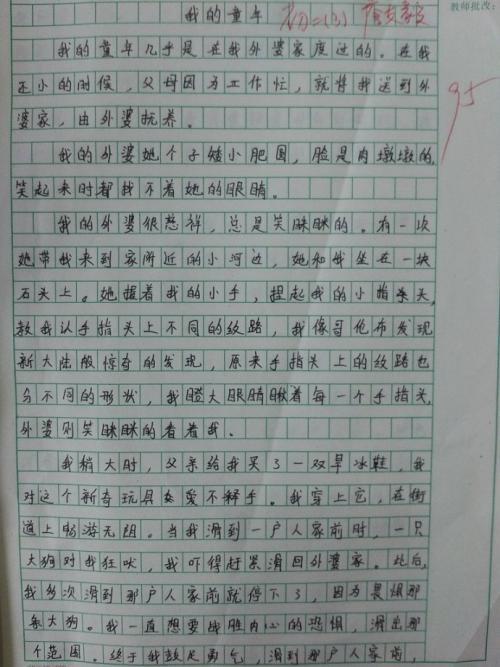 教师批改:
我的童年 初二(3)
95
我的童年几乎是在我外婆家度过的。在我
还小的时候，父母因为工作忙，就将我送到外
婆家，由外婆抚养。
我的外婆她个子矮小肥圆，脸是肉墩墩的，
笑起来时都找不着她的眼睛。
我的外婆很慈祥，总是笑眯眯的。有一次
她带我来到家附近的小河边，她和我坐在一块
石头上。她握着我的小手，捏起我的小指头，
教我认手指头上不同的纹路，我像哥伦布发现
新大陆般惊奇的发现，原来手指头上的纹路也
分不同的形状，我瞪大眼睛瞅着每一个手指头，
外婆则笑眯眯的看着我。
我稍大时，父亲给我买了一双旱冰鞋，我
对这个新奇玩具爱不释手。我穿上它，在街
道上畅游无阻。当我滑到一户人家前时，一只
大狗对我狂吠，我吓得赶紧滑回外婆家。此后，
我多次滑到那户人家前就停下了，因为畏惧那
条大狗。我一直想要战胜内心的恐惧，滑出那
个范围。终于我鼓足勇气，滑到那户人家前，